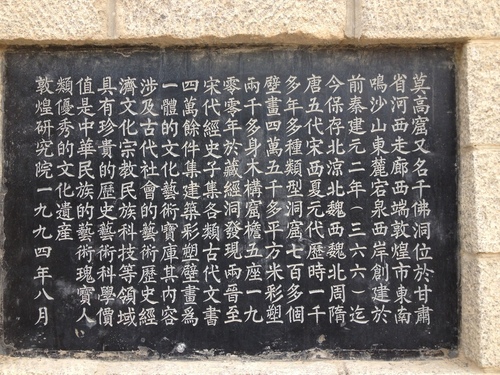 莫高窟又名千佛洞位於甘肅
省河西走廊西端敦煌市東南
鳴沙山東麓宕泉西岸創建於
前秦建元二年(三六六)迄
今保存北涼北魏西魏北周隋
唐五代宋西夏元代歷時一千
多年多種類型洞窟七百多個
壁畫四萬五千多平方米彩塑
兩千多身木構窟檐五座一九
零零年於藏經洞發現兩晉至
宋代經史子集各類古代文書
四萬餘件集建築彩塑壁畫為
一體的文化藝術寶庫其內容
涉及古代社會的藝術歷史經
濟文化宗教民族科技等領域
具有珍貴的歷史藝術科學價
值是中華民族的藝術瑰寶人
類優秀的文化遺産
敦煌研究院一九九四年八月